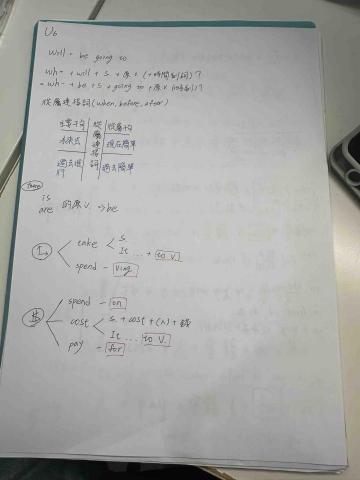 U6
will = be going to
wh- + will + S + 原V (+時間副詞)?
= wh- + be + S + going to + 原V (+時副)?
從屬連接詞 (when, before, after)
主要子句 從屬連接詞 從屬子句
未來式 現在簡單
過去進行 過去簡單
There
is
are 的原V. ⇒ be
take < S.
It ... + to V.
spend - Ving
$
spend - on
cost < S. + cost + (人) + 錢
It ... to V.
pay - for